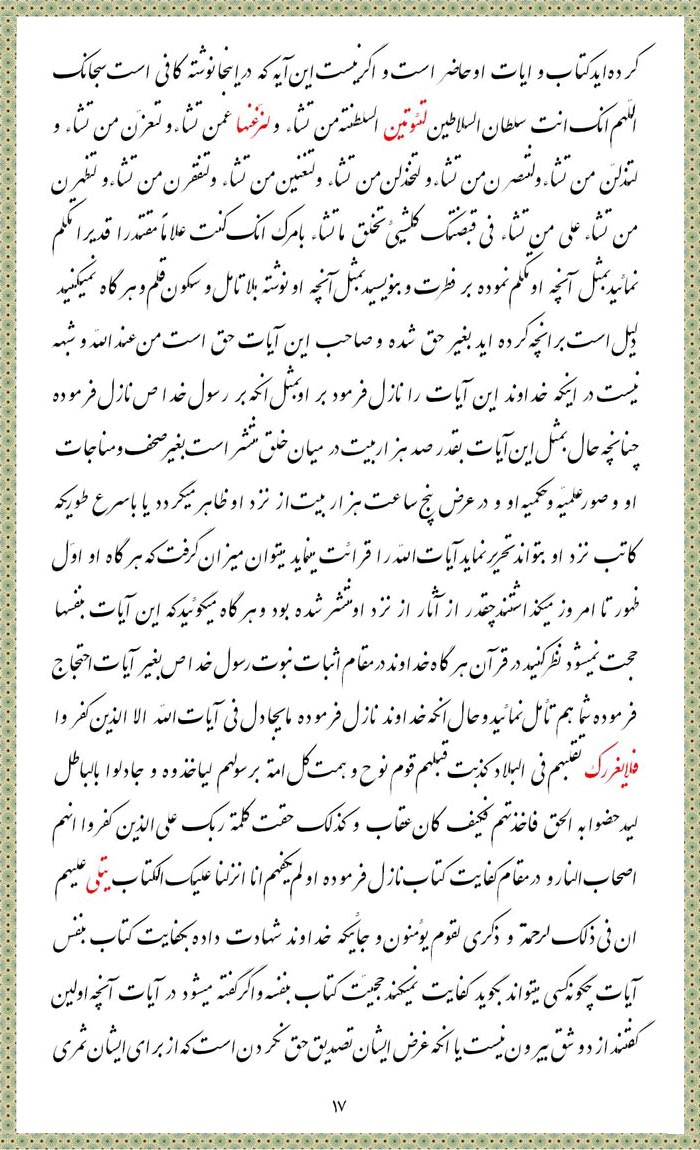 کر ده اید کتاب و ایات او حاضر است و اگر نیست این آیه که در اینجا نوشته کافی است سبحانک
اللّهم انک انت سلطان السلاطین لتئوتین السلطنته من تشاء و لنزعنها عمن تشاء و لتعزّن من تشاء و
لتذلنّ من تشاء ولتنصر ن من تشاء و لتخذلن من تشاء ولتغنین من تشاء ولتفقرن من تشاء و لتظهر ن
من تشاء علی من تشاء فی قبضتک کلشیئ تخلق ما تشاء بامرک انک کنت علاماً مقتدرا قدیرا تکلم
نمائید بمثل آنچه او تکلم نموده بر فطرت و بنویسید بمثل آنچه او نوشته بلا تامل و سکون قلم و هر گاه نمیکنید
دلیل است بر انچه کر ده اید بغیر حق شده و صاحب این آیات حق است من عند اللّه و شبهه
نیست در اینکه خداوند این آیات را نازل فرمود بر او بمثل انکه بر رسول خدا ص نازل فرموده
چنانچه حال بمثل این آیات بقدر صد هزار بیت در میان خلق منتشر است بغیر صحف و مناجات
او و صور علمیّه و حکمیه او و در عرض پنج ساعت هزار بیت از نزد او ظاهر میگردد یا باسرع طوریکه
کاتب نزد او بتواند تحریر نماید آیات اللّه را قرائت مینماید میتوان میزان گرفت که هر گاه او اوّل
ظهور تا امروز میگذاشتند چقدر از آثار از نزد او منتشر شده بود و هر گاه میگوئید که این آیات بنفسها
حجت نمیشود نظر کنید در قرآن هر گاه خداوند در مقام اثبات نبوت رسول خدا ص بغیر آیات احتجاج
فرموده شما هم تأمل نمائید و حال آنکه خداوند نازل فرموده ما یجادل فی آیات اللّه الا الذین کفر وا
فلایغررک تقلبهم فی البلاد کذبت قبلهم قوم نوح و همت کل امة برسولهم لیاخذوه و جادلوا بالباطل
لیدحضوا به الحق فاخذتهم فکیف کان عقاب و کذلک حقت کلمة ربک علی الذین کفروا انهم
اصحاب النار و در مقام کفایت کتاب نازل فرموده او لم یکفهم انا انزلنا علیک الکتاب یتلی علیهم
ان فی ذلک لرحمة و ذکری لقوم یؤمنون و جائیکه خداوند شهادت داده بکفایت کتاب بنفس
آیات چگونه کسی میتواند بگوید کفایت نمیکند حجیّت کتاب بنفسه و اگر گفته میشود در آیات آنچه اولین
گفتند از دو شق بیرون نیست یا انکه غرض ایشان تصدیق حق نکر دن است که از برای ایشان ثمری
١٧